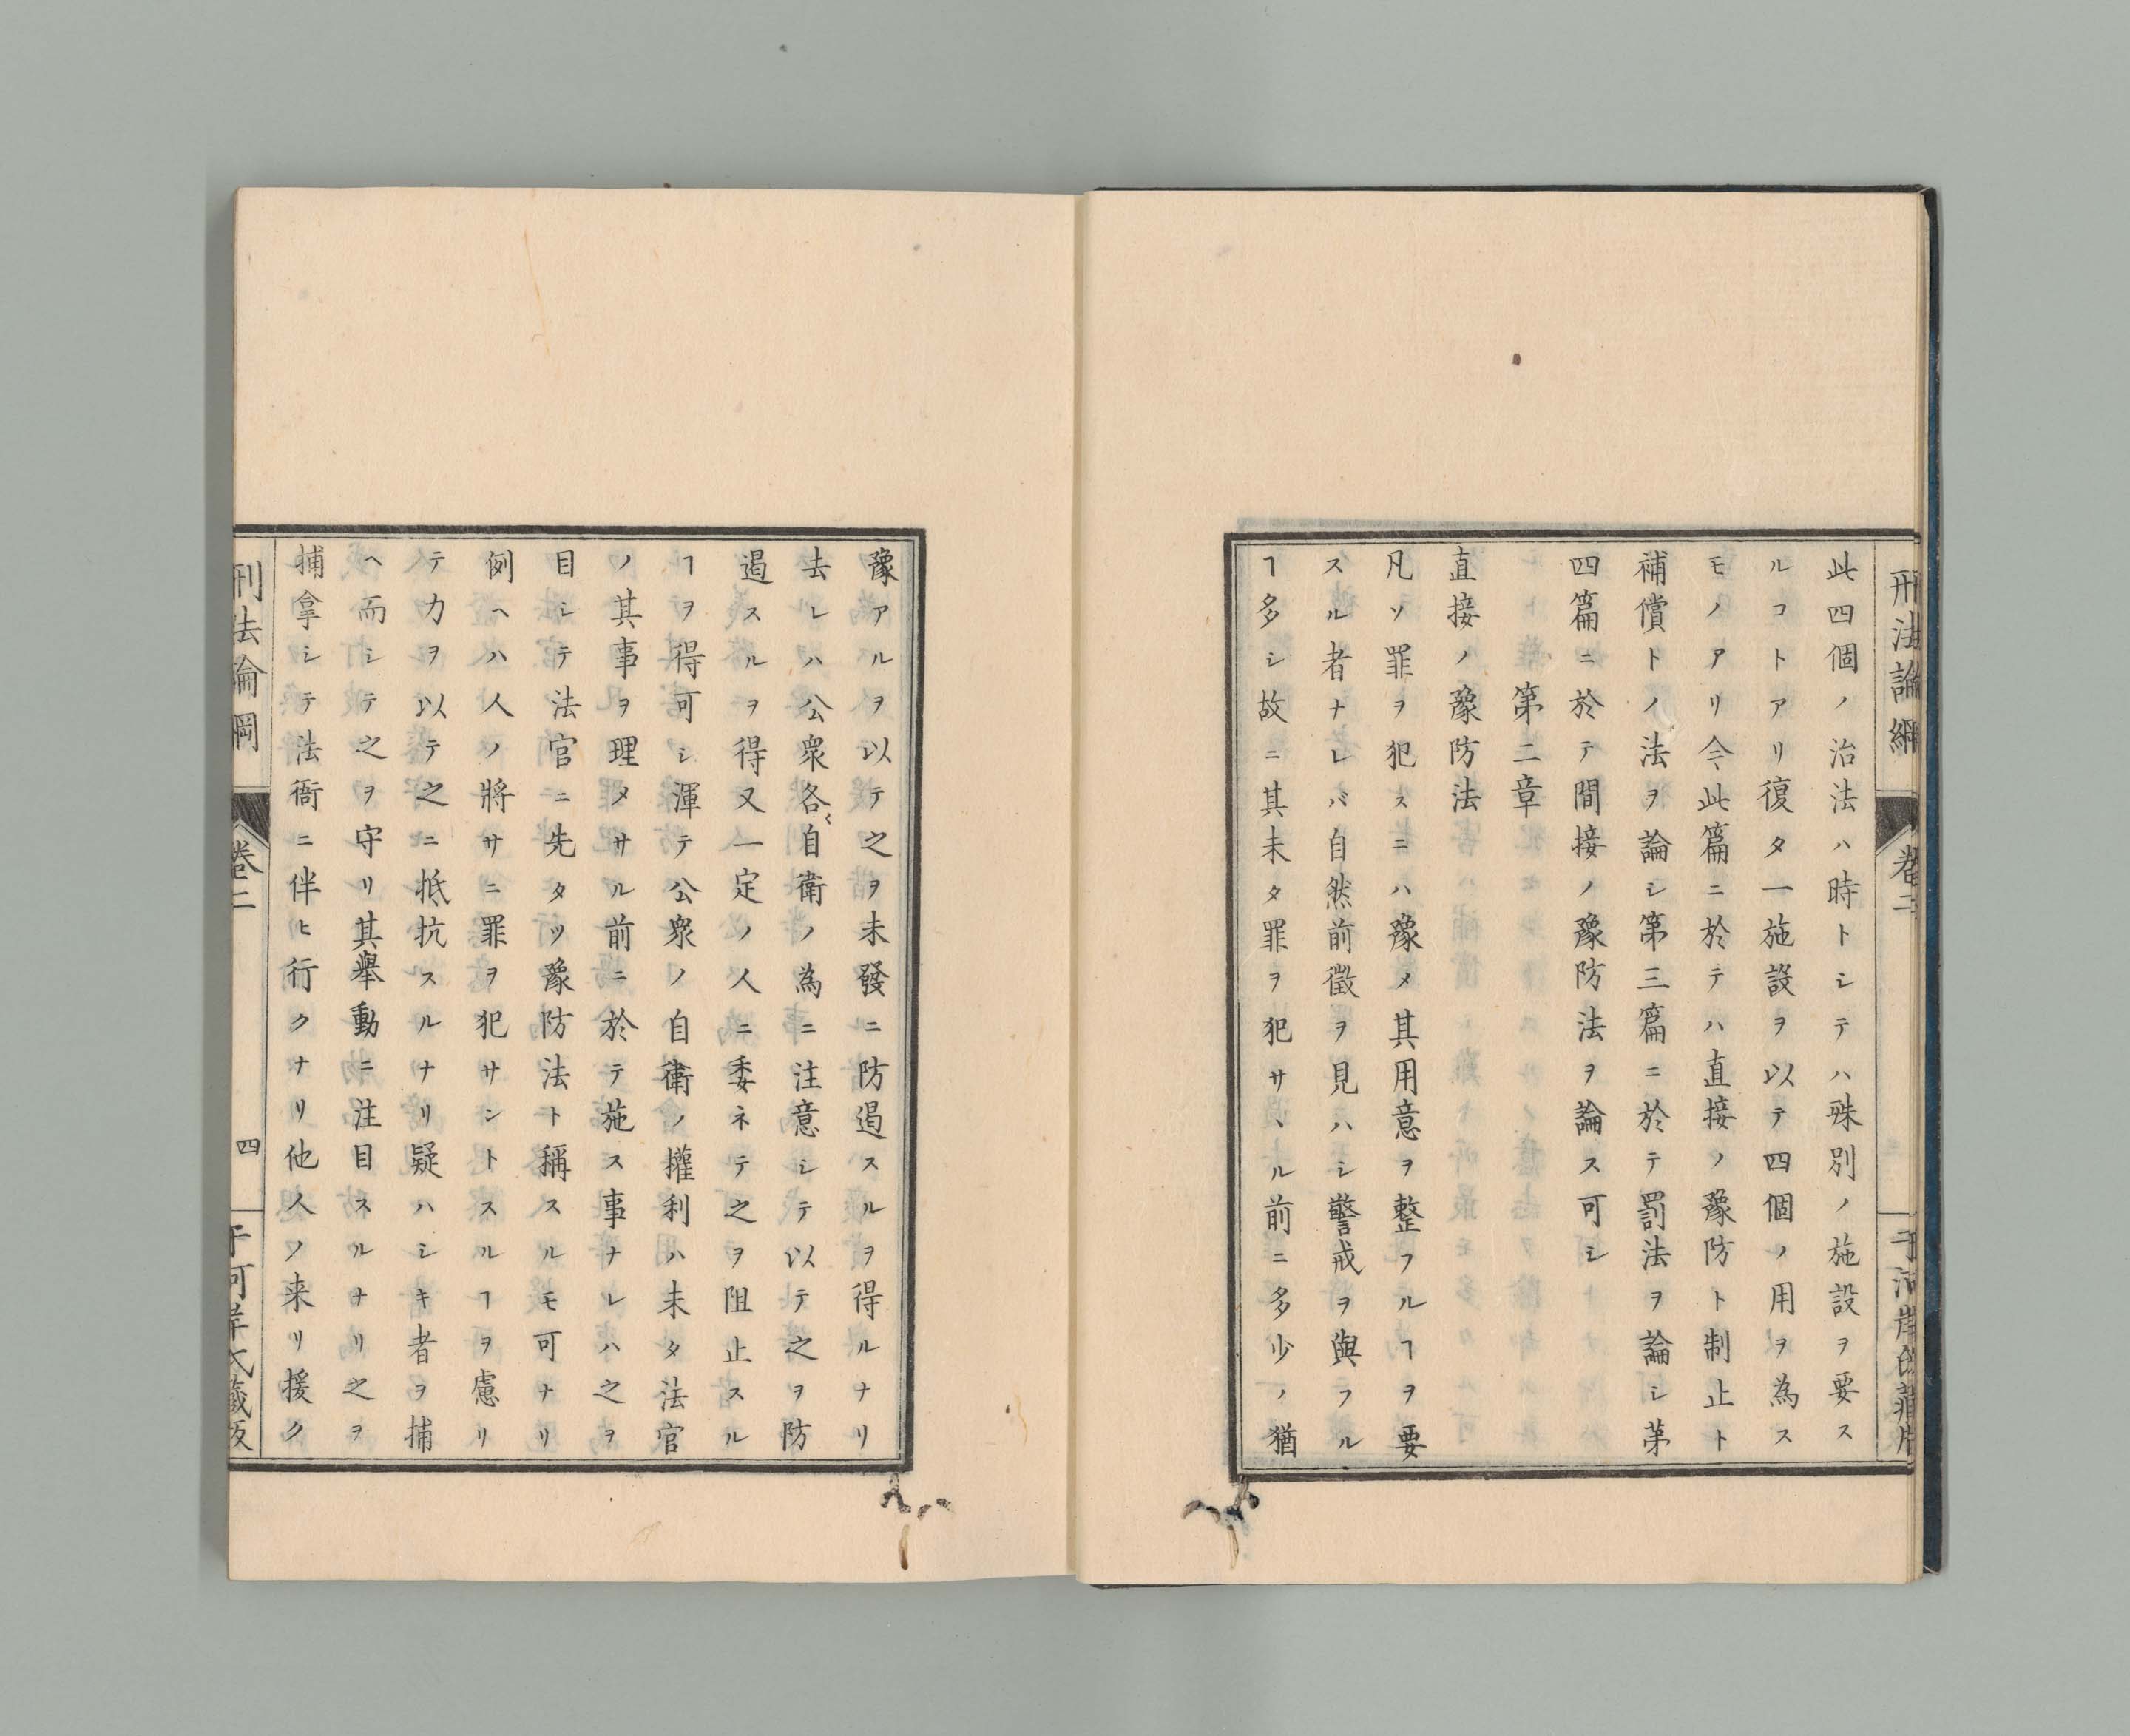 刑法論綱
卷二
此四個ノ治法ハ時トシテハ殊別ノ施設ヲ要ス
ルコトアリ復タ一施設ヲ以テ四個ノ用ヲ為ス
モノアリ今此篇ニ於テハ直接ノ豫防ト制止ト
補償トノ法ヲ論シ第三篇ニ於テ罰法ヲ論シ第
四篇ニ於テ間接ノ豫防法ヲ論ス可シ
第二章
直接ノ豫防法
凡ソ罪ヲ犯スニハ豫メ其用意ヲ整フルヿヲ要
スル者ナレバ自然前徴ヲ見ハシ警戒ヲ與フル
ヿ多シ故ニ其未タ罪ヲ犯サヽル前ニ多少ノ猶
豫アルヲ以テ之ヲ未發ニ防遏スルヲ得ルナリ
去レハ公衆各〱自衛ノ為ニ注意シテ以テ之ヲ防
遏スルヲ得又一定ノ人ニ委ネテ之ヲ阻止スル
ヿヲ得可シ渾テ公衆ノ自衛ノ權利ハ未タ法官
ノ其事ヲ理メサル前ニ於テ施ス事ナレハ之ヲ
目シテ法官ニ先タツ豫防法ト稱スルモ可ナリ
例ヘハ人ノ將サニ罪ヲ犯サントスルヿヲ慮リ
テ力ヲ以テ之ニ抵抗スルナリ疑ハシキ者ヲ捕
ヘ而シテ之ヲ守リ其舉動ニ注目スルナリ之ヲ
捕拿シテ法衙ニ伴ヒ行クナリ他人ノ来リ援ク
刑法論綱
卷二
四
河岸氏藏版